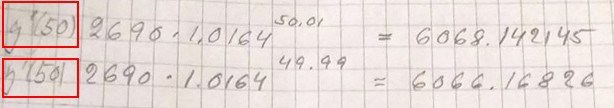 y'(50) 2690 · 1.0164^50.01 = 6068.142145
y'(50) 2690 · 1.0164^49.99 = 6066.16826